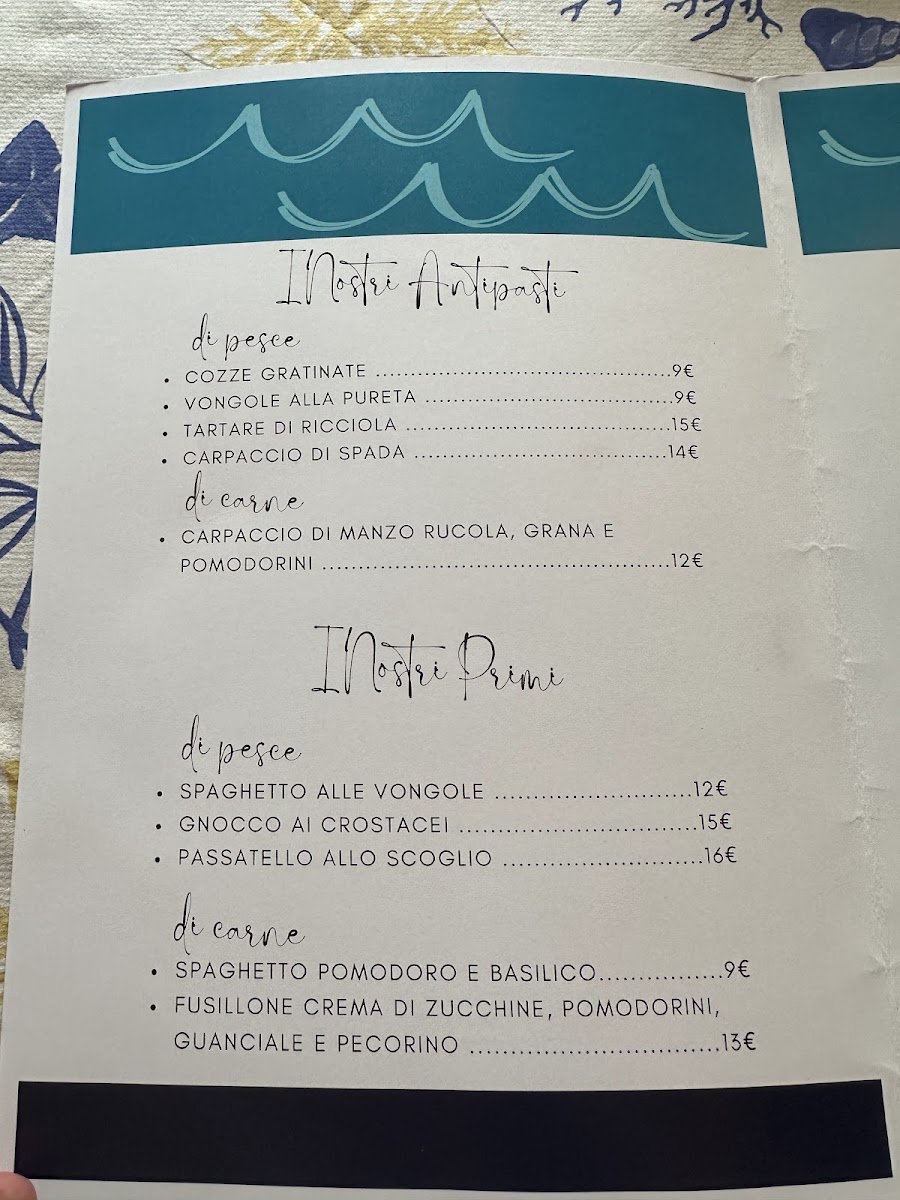 I Nostri Antipasti
di pesce
• COZZE GRATINATE ........................................9€
• VONGOLE ALLA PURETA ..................................9€
• TARTARE DI RICCIOLA ....................................15€
• CARPACCIO DI SPADA ...................................14€
di carne
• CARPACCIO DI MANZO RUCOLA, GRANA E
POMODORINI ...............................................12€
I Nostri Primi
di pesce
• SPAGHETTO ALLE VONGOLE ..........................12€
• GNOCCO AI CROSTACEI ................................15€
• PASSATELLO ALLO SCOGLIO ...........................16€
di carne
• SPAGHETTO POMODORO E BASILICO................9€
• FUSILLONE CREMA DI ZUCCHINE, POMODORINI,
GUANCIALE E PECORINO .................................13€